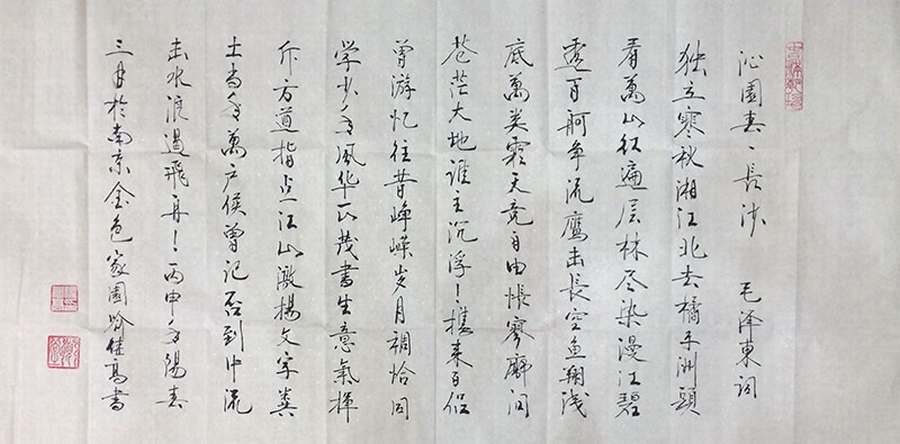 沁園春、長沙 毛泽東词
独立寒秋湘江北去橘子洲頭
看萬山红遍层林尽染漫江碧
透百舸争流鹰击長空鱼翔浅
底萬类霜天竞自由悵寥廓问
苍茫大地谁主沉浮！携来百侣
曾游忆往昔峥嵘岁月稠恰同
学少年風华正茂書生意氣挥
斥方遒指点江山激揚文字粪
土当年萬户侯曾记否到中流
击水浪遏飛舟！丙申年陽春
三月於南京金色家園 高書